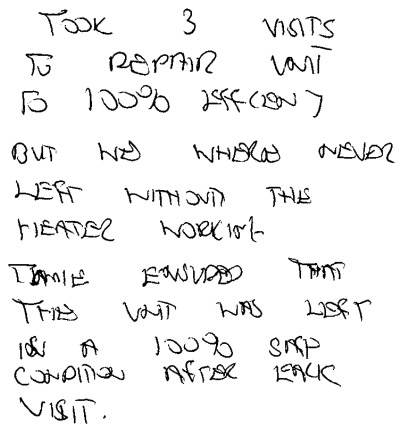 TOOK 3 VISITS
TO REPAIR UNIT
TO 100% EFFCIENT
BUT WE WHERE NEVER
LEFT WITHOUT THE
HEATER WORKING
ENSURED THAT
THE UNIT WAS LEFT
IN A 100% SAFE
CONDITION AFTER EACH
VISIT.